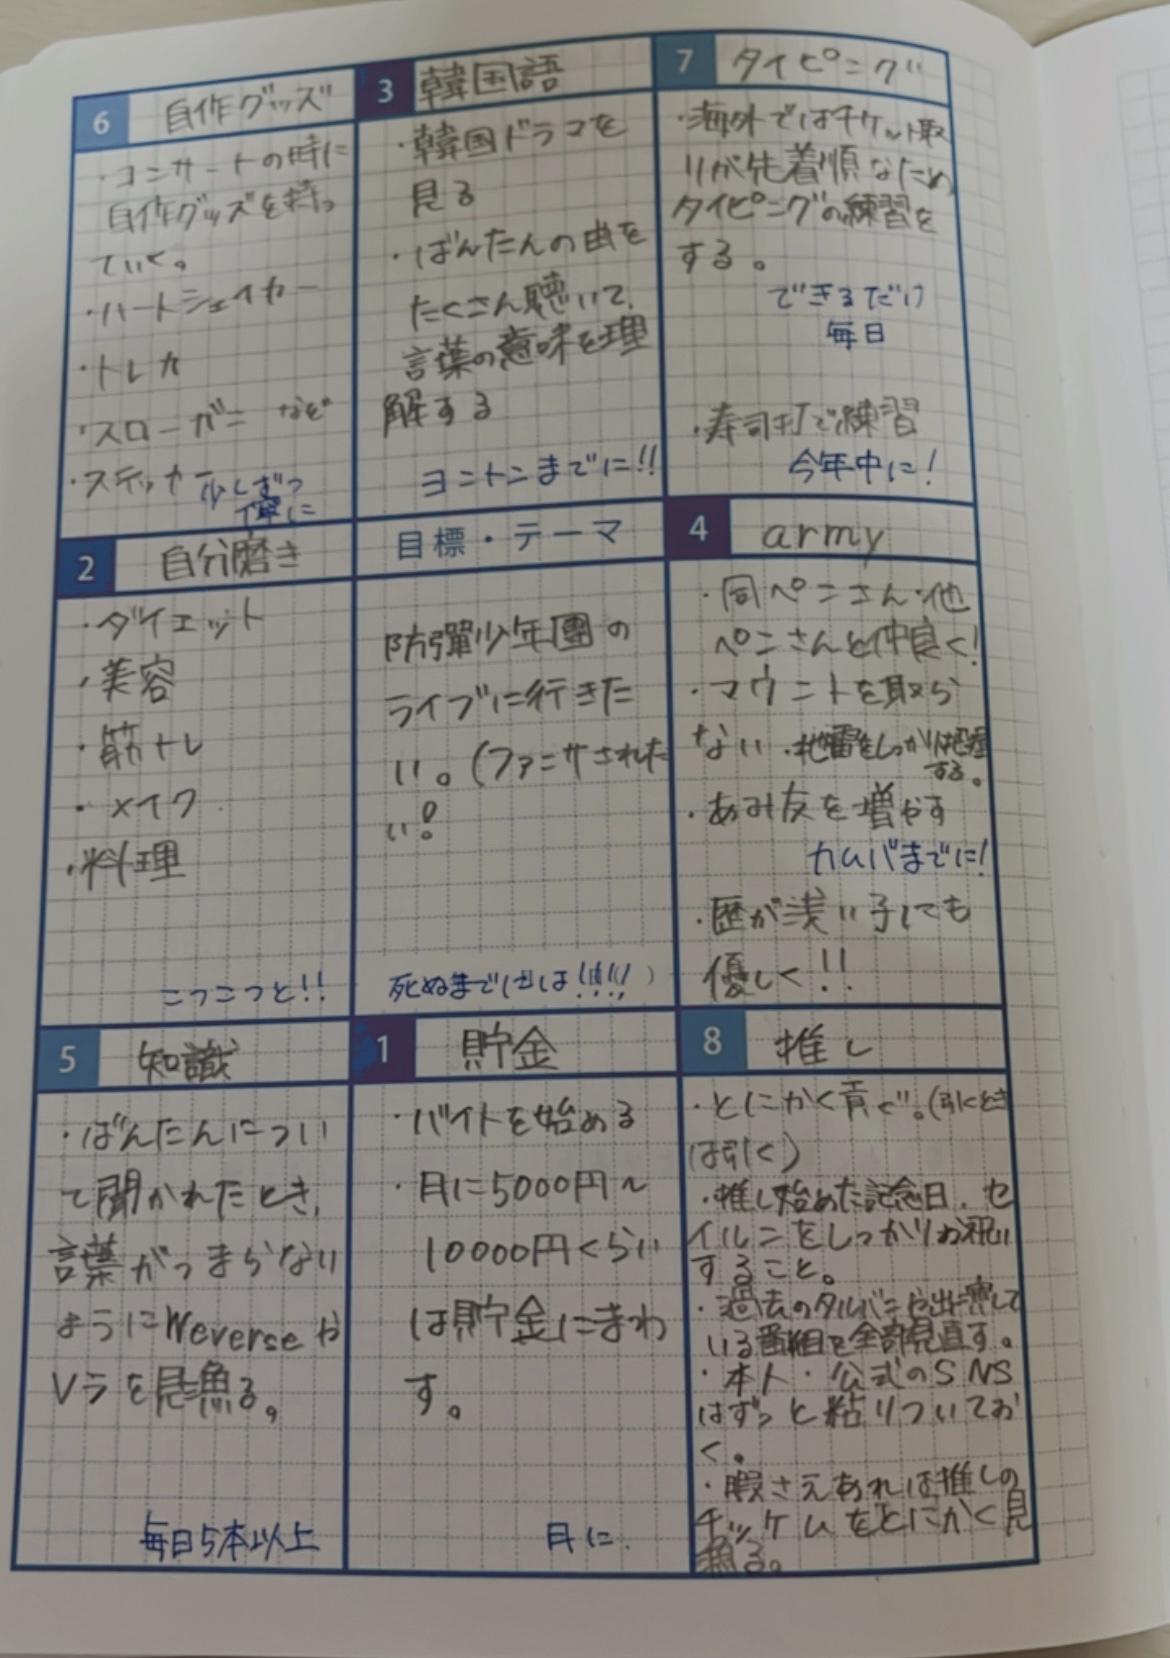 6 自作グッズ
・コンサートの時に
自作グッズを持っ
ていく。
・ハートシェイカー
・トレカ
・スローガン など
・ステッカー
少しずつ
丁寧に
3 韓国語
・韓国ドラマを
見る
・ばんたんの曲を
たくさん聴いて、
言葉の意味を理
解する
ヨントンまでに!!
7 タイピング
・海外ではチケット取
りが先着順なため
タイピングの練習を
する。
できるだけ
毎日
・寿司打で練習
今年中に!
2 自分磨き
・ダイエット
・美容
・筋トレ
・メイク
・料理
こつこつと!!
目標・テーマ
防彈少年團の
ライブに行きた
い。(ファンサされた
い!
死ぬまでには!!!!!)
4 army
・同ペンさん・他
ペンさんと仲良く!
・マウントを取ら
ない ・地雷をしっかり把握
する。
・あみ友を増やす
カムバまでに!
・歴が浅い子にも
優しく!!
5 知識
・ばんたんについ
て聞かれたとき、
言葉がつまらない
ようにWeverseや
Vラを見漁る。
毎日5本以上
1 貯金
・バイトを始める
・月に5000円~
10000円くらい
は貯金にまわ
す。
月に.
8 推し
・とにかく貢ぐ。(引くとき
は引く)
・推し始めた記念日、セ
イルンをしっかりお祝い
すること。
・過去のタルバンや出演して
いる番組を全部見直す。
・本人・公式のSNS
はずっと粘りついてお
く。
・暇さえあれば推しの
チッケムをとにかく見
漁る。